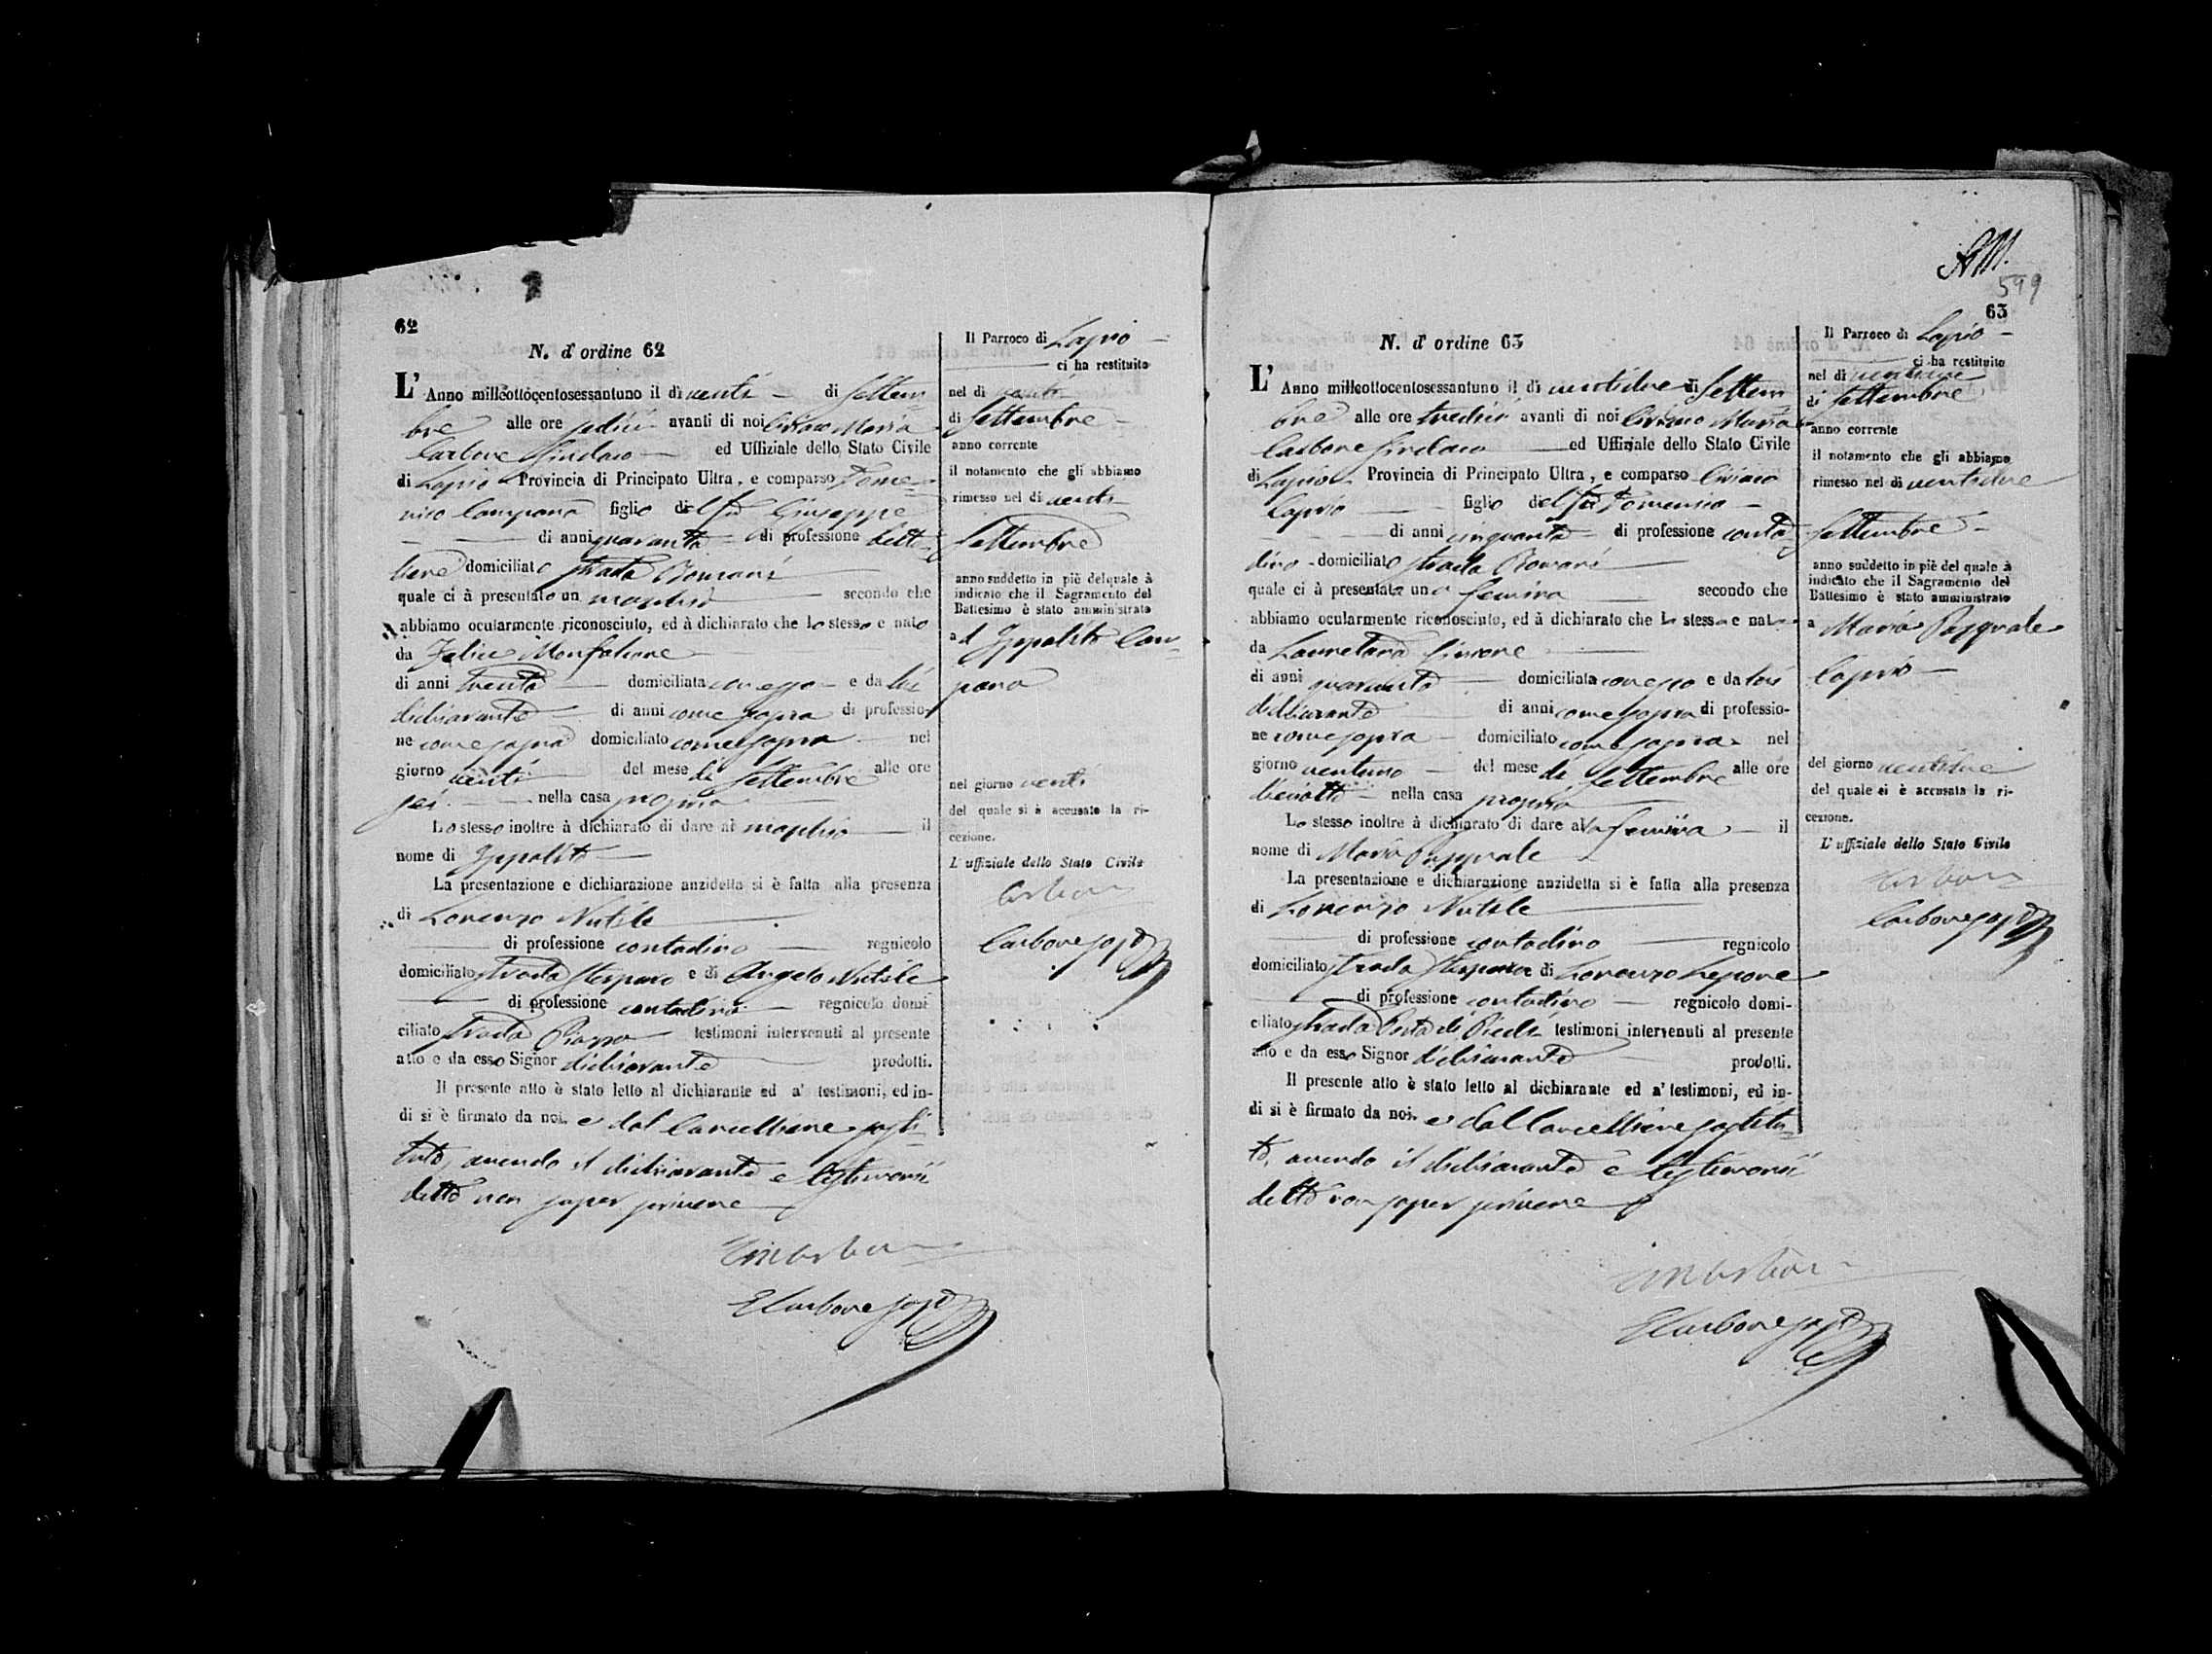 62
N. d' ordine 62
L' Anno milleottocentosessantuno il dì venti di Settem
bre alle ore sedici avanti di noi Ciriaco Maria
Carbone Sindaco ed Uffiziale dello Stato Civile
di Lapio Provincia di Principato Ultra, e comparso Dome=
nico Campana figlio del fu Giuseppe
di anni quaranta di professione bett=
liere domiciliato strada Romani
quale ci à presentato un maschio secondo che
abbiamo ocularmente riconosciuto, ed à dichiarato che lo stesso e nato
da Felice Monfalcone
di anni trenta domiciliata con esso e da lui
dichiarante di anni come sopra di professio-
ne come sopra domiciliato come sopra nel
giorno venti del mese di Settembre alle ore
sei nella casa propria
Lo stesso inoltre à dichiarato di dare al maschio il
nome di Ippolito
La presentazione e dichiarazione anzidetta si è fatta alla presenza
di Lorenzo Nutile
di professione contadino regnicolo
domiciliato strada e di Angelo Nutile
di professione contadino regnicolo domi
ciliato strada Piazza testimoni intervenuti al presente
atto e da esso Signor dichiarante prodotti.
Il presente atto è stato letto al dichiarante ed a' testimoni, ed in-
di si è firmato da noi e dal Cancelliere sosti=
tuto, avendo il dichiarante e testimonii
detto non saper scrivere
E Carbone sost
Il Parroco di Lapio
ci ha restituito
nel di venti
di Settembre
anno corrente
il notamento che gli abbiamo
rimesso nel di venti
Settembre
anno suddetto in piè del quale à
indicato che il Sagramento del
Battesimo è stato amministrato
a d Ippolito Cam=
pana
nel giorno venti
del quale si è accusato la ri-
cezione.
L' uffiziale dello Stato Civile
Carbone sost
599
63
N. d' ordine 63
L' Anno milleottocentosessantuno il dì ventidue di Settem
bre alle ore tredici avanti di noi Ciriaco Maria
Carbone Sindaco ed Uffiziale dello Stato Civile
di Lapio Provincia di Principato Ultra, e comparso Ciriaco
Caprio figlio del fu
di anni cinquanta di professione conta=
dino domiciliato strada Romani
quale ci à presentata una femina secondo che
abbiamo ocularmente riconosciuto, ed à dichiarato che la stessa e nata
da Lauretana
di anni quaranta domiciliata con esso e da lui
dichiarante di anni come sopra di professio-
ne come sopra domiciliato come sopra nel
giorno ventuno del mese di Settembre alle ore
dieciotto nella casa propria
Lo stesso inoltre à dichiarato di dare alla femina il
nome di Maria Pasquale
La presentazione e dichiarazione anzidetta si è fatta alla presenza
di Lorenzo Nutile
di professione contadino regnicolo
domiciliato strada di Lorenzo Lepore
di professione contadino regnicolo domi-
ciliato strada Porta di testimoni intervenuti al presente
atto e da esso Signor dichiarante prodotti.
Il presente atto è stato letto al dichiarante ed a' testimoni, ed in-
di si è firmato da noi e dal Cancelliere sostitu=
to, avendo il dichiarante e testimonii
detto non saper scrivere
E Carbone sost
Il Parroco di Lapio
ci ha restituito
nel di ventidue
di Settembre
anno corrente
il notamento che gli abbiamo
rimesso nel di ventidue
Settembre
anno suddetto in piè del quale à
indicato che il Sagramento del
Battesimo è stato amministrato
a Maria Pasquale
Caprio
del giorno ventidue
del quale si è accusata la ri-
cezione.
L' uffiziale dello Stato Civile
Carbone sost